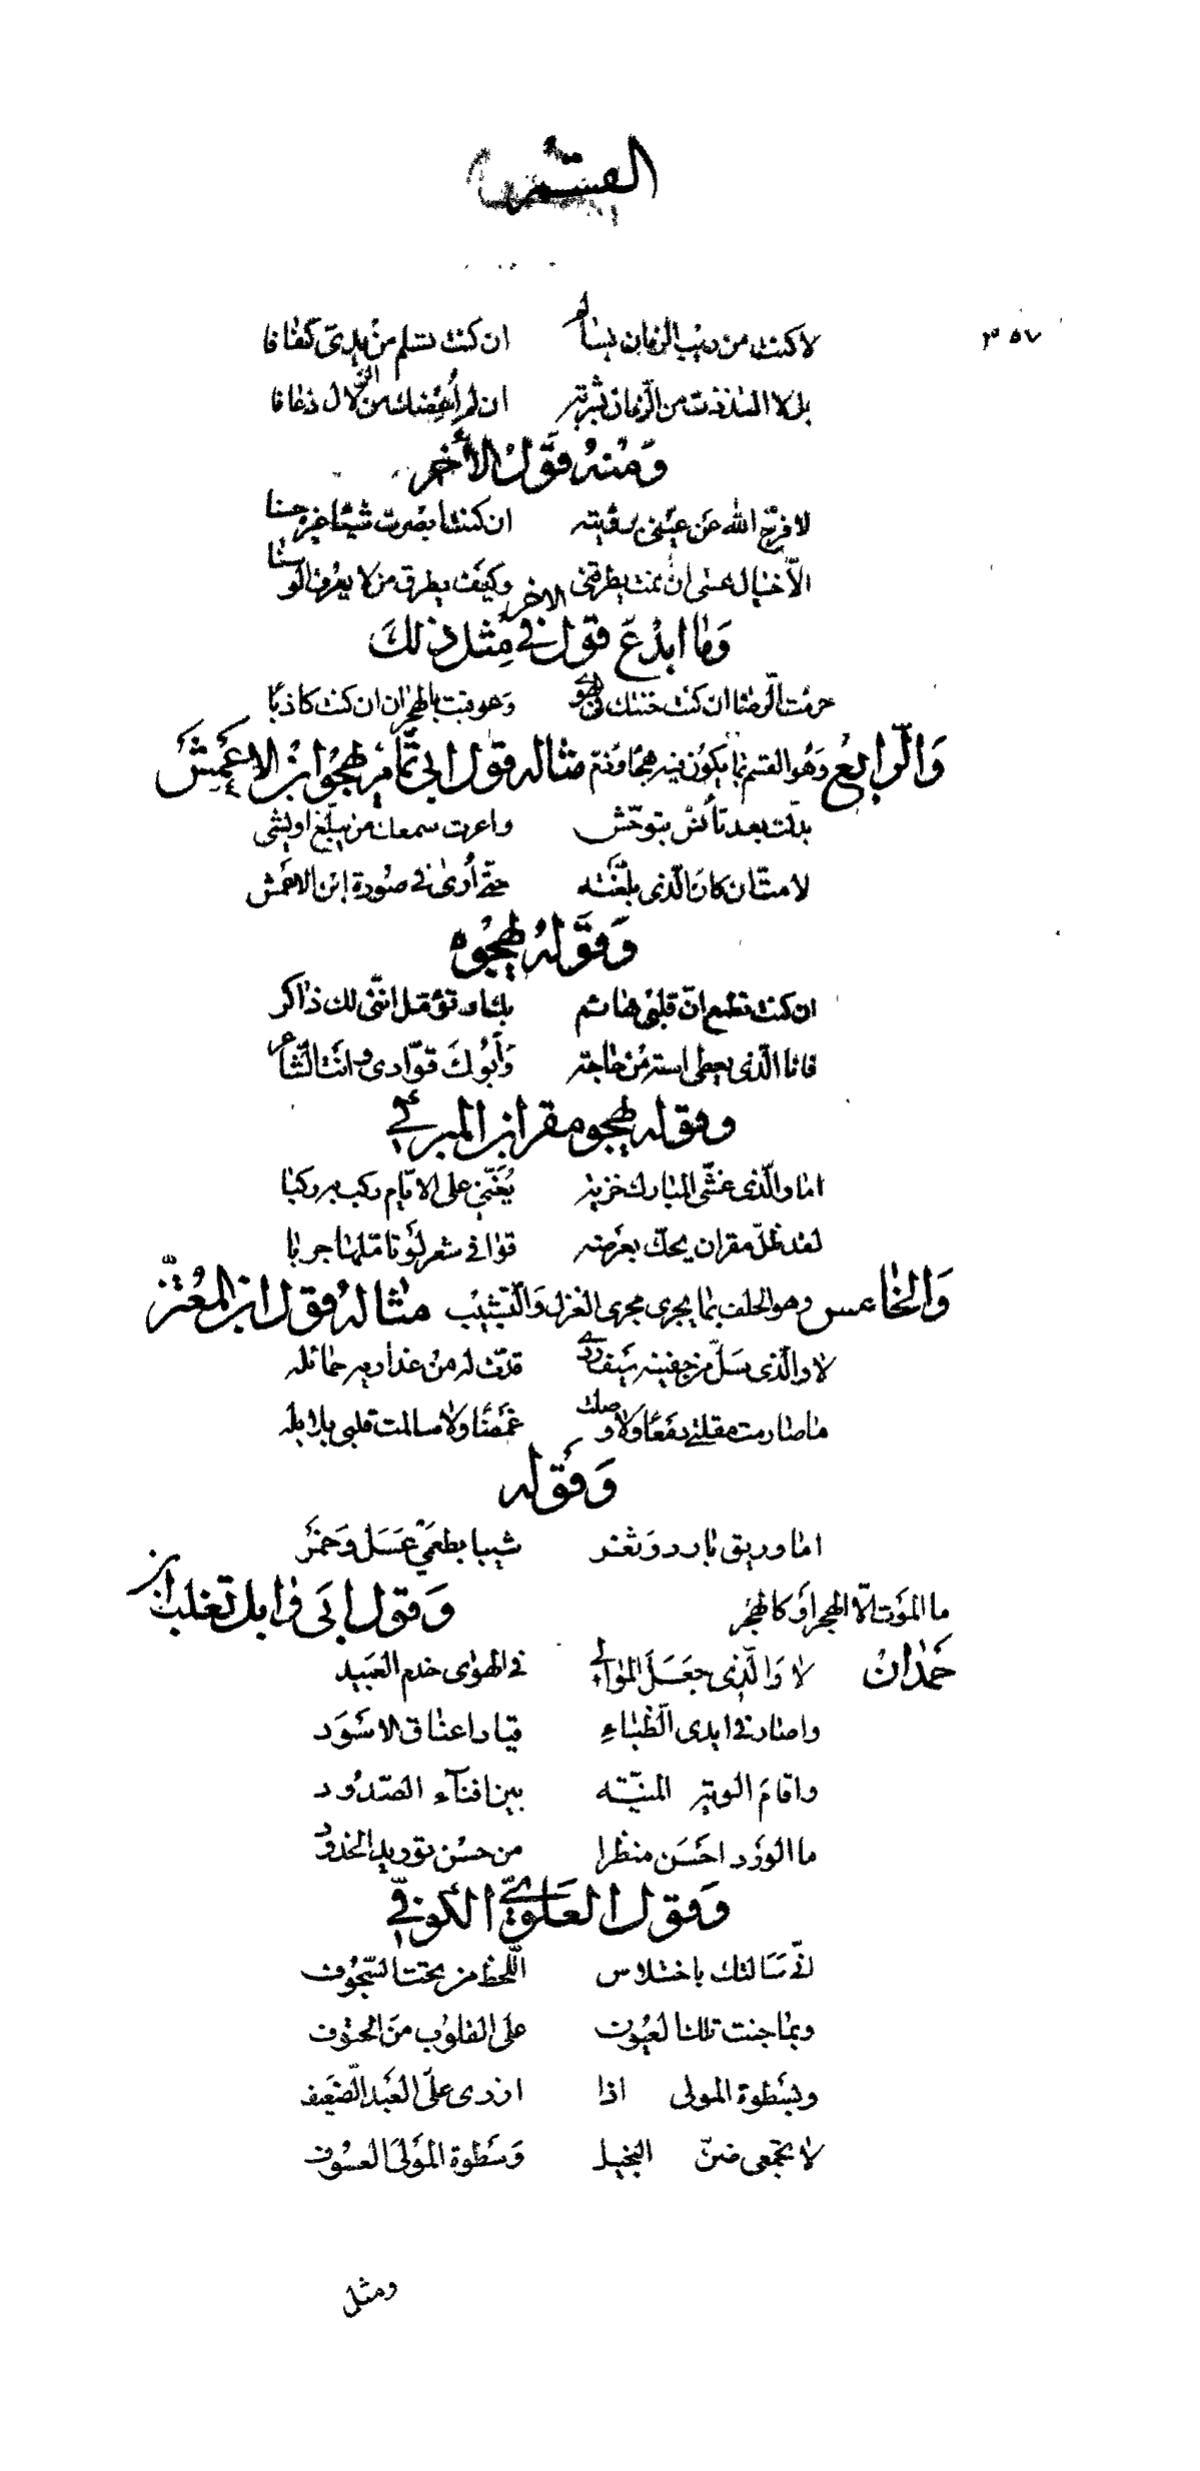 القسم
٣٥٧
لا كنت من ريب الزمان بسالم ان كنت تسلم من يديّ كفافا
بل لا التذذت من الزمان بشربة ان لم أُعضك من الزّلال ذعافا
وَمنهُ قَوْلُ الأخر
لا فرّج الله عَن عيني برؤيته ان كنت ابصرت شيئا غيره حسنا
الّا خيال عسى ان نمت يطرقنى وكيف يطرق من لا يعرف الوسنا
وَما ابدْعَ قول الاخر في مِثل ذلكَ
حرمْت الرضا ان كنت خنتك في الهوى وعوقبت بالهجران ان كنت كاذبًا
وَالرّابعُ وَهُو القسم بما يكوُن فيه هجَاوُذم مثاله قول ابى تمّامْ يهجُو ابنْ الاعمِشَ
بدّلت بعد تأنسْ بتوحّش واعرت سمعك من يبلّغ او يشى
لا متّ ان كانَ الّذى بلغْته حتّى أُرىٰ في صُورة ابن الاعمش
وَقَوْلهُ يهجُوه
ان كنت تطمع انّ قلبى هائم بك او تؤمّل انّنى لك ذاكر
فانا الّذى يعطى استه من حاجة وَأبُوكَ قوّادى وانت الشاعر
وقوله يهجو مقران المبرقي
اما والّذى غشّى المبارك خزية يُغَنّي على الايّام ركب به ركبا
لقد ظلّ مقران يحكّ بعرضه قوافى شعر لَو تامّلها جربا
وَالخامس وهو الحلف بما يجرى مجرى الغزل وَالتشبيْب مثالهُ قول ابن المعُتزّ
لا والّذى سَلّ من جفنيه سَيف ردى قدّت له من عذاريه حمائله
ما صارمت مقلتي دمَعًا ولا وصلت غمَضًا ولا سالمت قلبى بلابله
وَقَوْله
اما وريق بارد وَثغر شيبا بطعمَيْ عَسَل وَخمَر
ما المَوت الّا الهجر اوَ كالهجُر وَقول ابىَ فراس تغلب ابن
حمَدان لا وَالّذِى جعَلَ الموالي في الهوٰى خدم العَبيد
واصار في ايدى الظّباءِ قياد اعناق الاسَوَد
واقامَ الوية المنيّته بين افنآء الصّدوُد
ما الورَد احَسَن منظرا من حسُن توريد الخدود
وَقول العَلوِيّ الكوُفيّ
انّي سَالتك باختلاس اللّحظ من تحت السّجوُف
وبما جنت تلك العيُون على القلوُب من الحتوف
وبسَطوة المولى اذا ازرى على العَبد الضّعيف
لا تجمعى ضنّ البخيل وَسَطوة المَولىَ العسُوف
ومثل